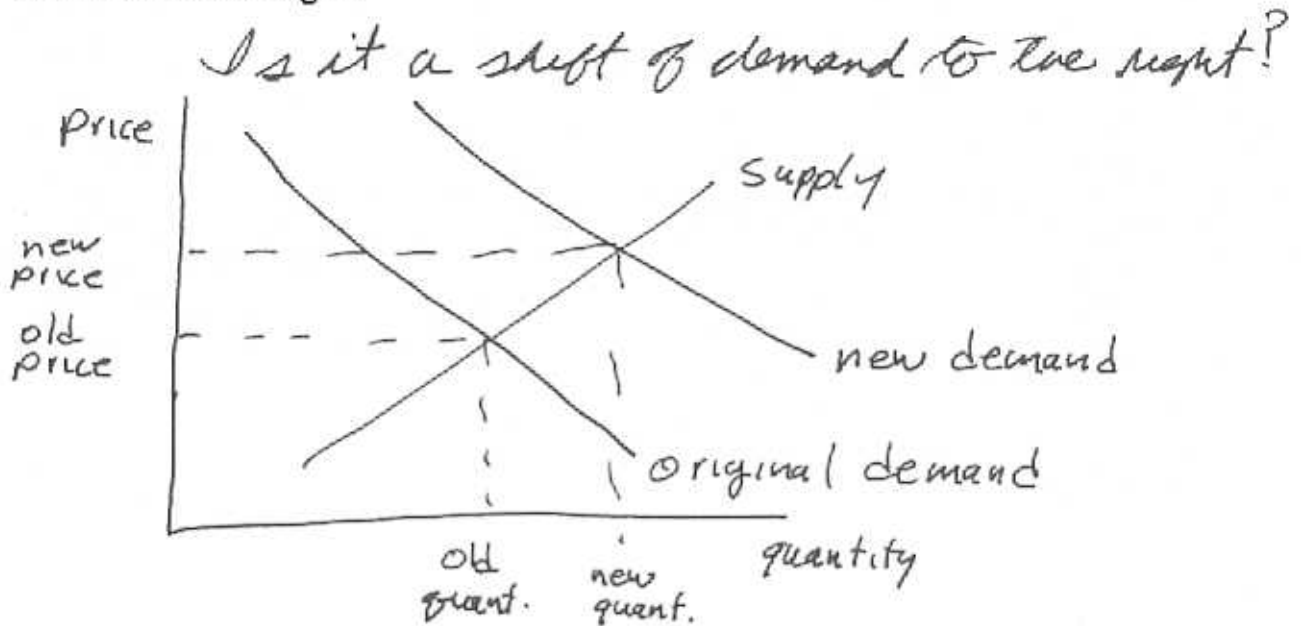 Is it a shift of demand to the right?
Price
Supply
new
price
old
price
new demand
original demand
old
quant.
new
quant.
quantity